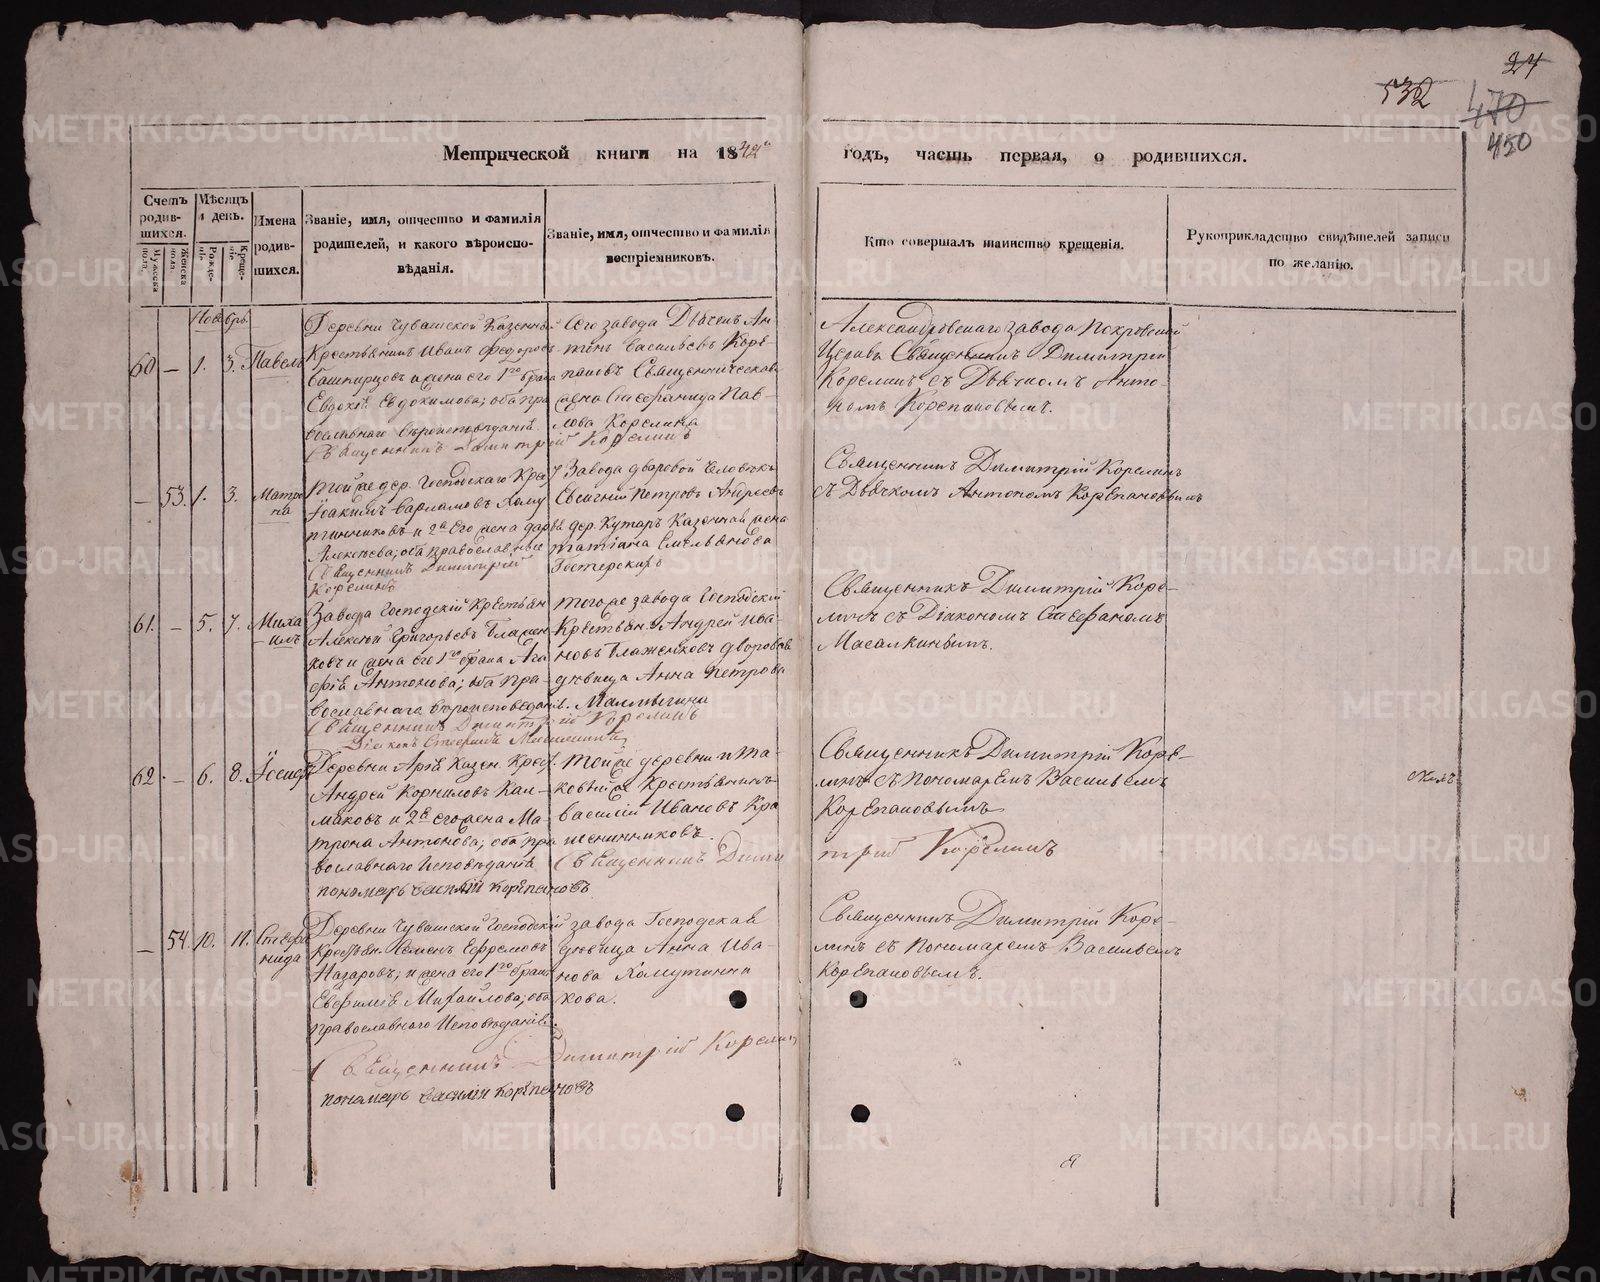 24
532
470
450
Метрической книги на 1842й
годъ, часть первая, о родившихся.
Счетъ родив- шихся.
Мужеска пола.
Женска пола.
Мѣсяцъ и день.
Рожде- нія.
Креще- нія.
Имена родив- шихся.
Званіе, имя, отчество и фамилія
родителей, и какого вѣроиспо-
вѣданія.
Званіе, имя, отчество и фамилія
воспріемниковъ.
Кто совершалъ таинство крещенія.
Рукоприкладство свидѣтелей записи
по желанію.
Ноябрь.
60 — 1. 3. Павелъ
Деревни Чувашской Казенный
Крестьянинъ Иванъ Федоровъ
Башкирцовъ и жена его 1го брака
Евдокія Евдокимова; оба пра
вославнаго вѣроисповѣданія.
Священникъ Димитрій Корелинъ
Сего завода Дьячекъ Ан-
тонъ Васильевъ Коре-
пановъ Священническая
жена Стефанида Пав-
лова Корелина
Александровскаго завода Покровской
Церкви Священникъ Димитрій
Корелинъ съ Дьячкомъ Анто-
номъ Корепановымъ.
— 53. 1. 3. Матре
на
Той же дер. Господскаго Кре
Іоакимъ Варламовъ Хому
тинниковъ и 2я его жена Дарья
Алексѣева; оба православные
Священникъ Димитрій
Корелинъ
Завода дворовой человѣкъ
Евгений Петровъ Андреевъ
дер. Кутаръ Казенная жена
Татіана Емельянова
Священникъ Димитрій Корелинъ
съ Дьячкомъ Антономъ Корепановымъ
61. — 5. 7. Миха
-илъ
Завода Господскій Крестьян
Алексѣй Григорьевъ Блажен
ковъ и жена его 1го брака Ага
фія Антонова; оба пра-
вославнаго вѣроисповѣданія.
Священникъ Димитрій Корелинъ
Діаконъ Стефанъ Масалкинъ
Того же завода Господскій
Крестьян. Андрей Ива-
новъ Блаженковъ дворовая
дѣвица Анна Петрова
Малмыгина
Священникъ Димитрій Коре-
линъ съ Діакономъ Стефаномъ
Масалкинымъ.
62. — 6. 8. Іосифъ
Деревни Аріи Казен. Крест.
Андрей Корниловъ Кал-
маковъ и 2я его жена Ма-
трона Антонова; оба пра
вославнаго Исповѣданія
пономарь Василій Корепановъ
Той же деревни и та-
ковый же Крестьянинъ
Василій Ивановъ Кра
шенинниковъ.
Священникъ Дими
трій Корелинъ
Священникъ Димитрій Коре-
линъ съ Пономаремъ Васильемъ
Корепановымъ
— 54. 10. 11. Стефа
нида
Деревни Чувашской Господскій
Крестьян. Семенъ Ефремовъ
Назаровъ; и жена его 1го брака
Евфимія Михайлова; оба
православнаго Исповѣданія.
Священникъ Димитрій Корелинъ
пономарь Василій Корепановъ
Завода Господская
дѣвица Анна Ива-
нова Хомутинни
кова.
Священникъ Димитрій Коре-
линъ съ Пономаремъ Васильемъ
Корепановымъ.
METRIKI.GASO-URAL.RU